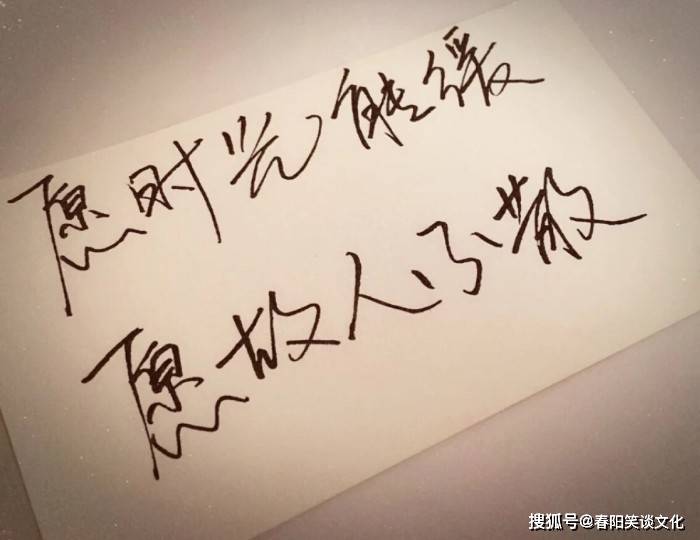 愿时光能缓
愿故人不散
搜狐号@春阳笑谈文化